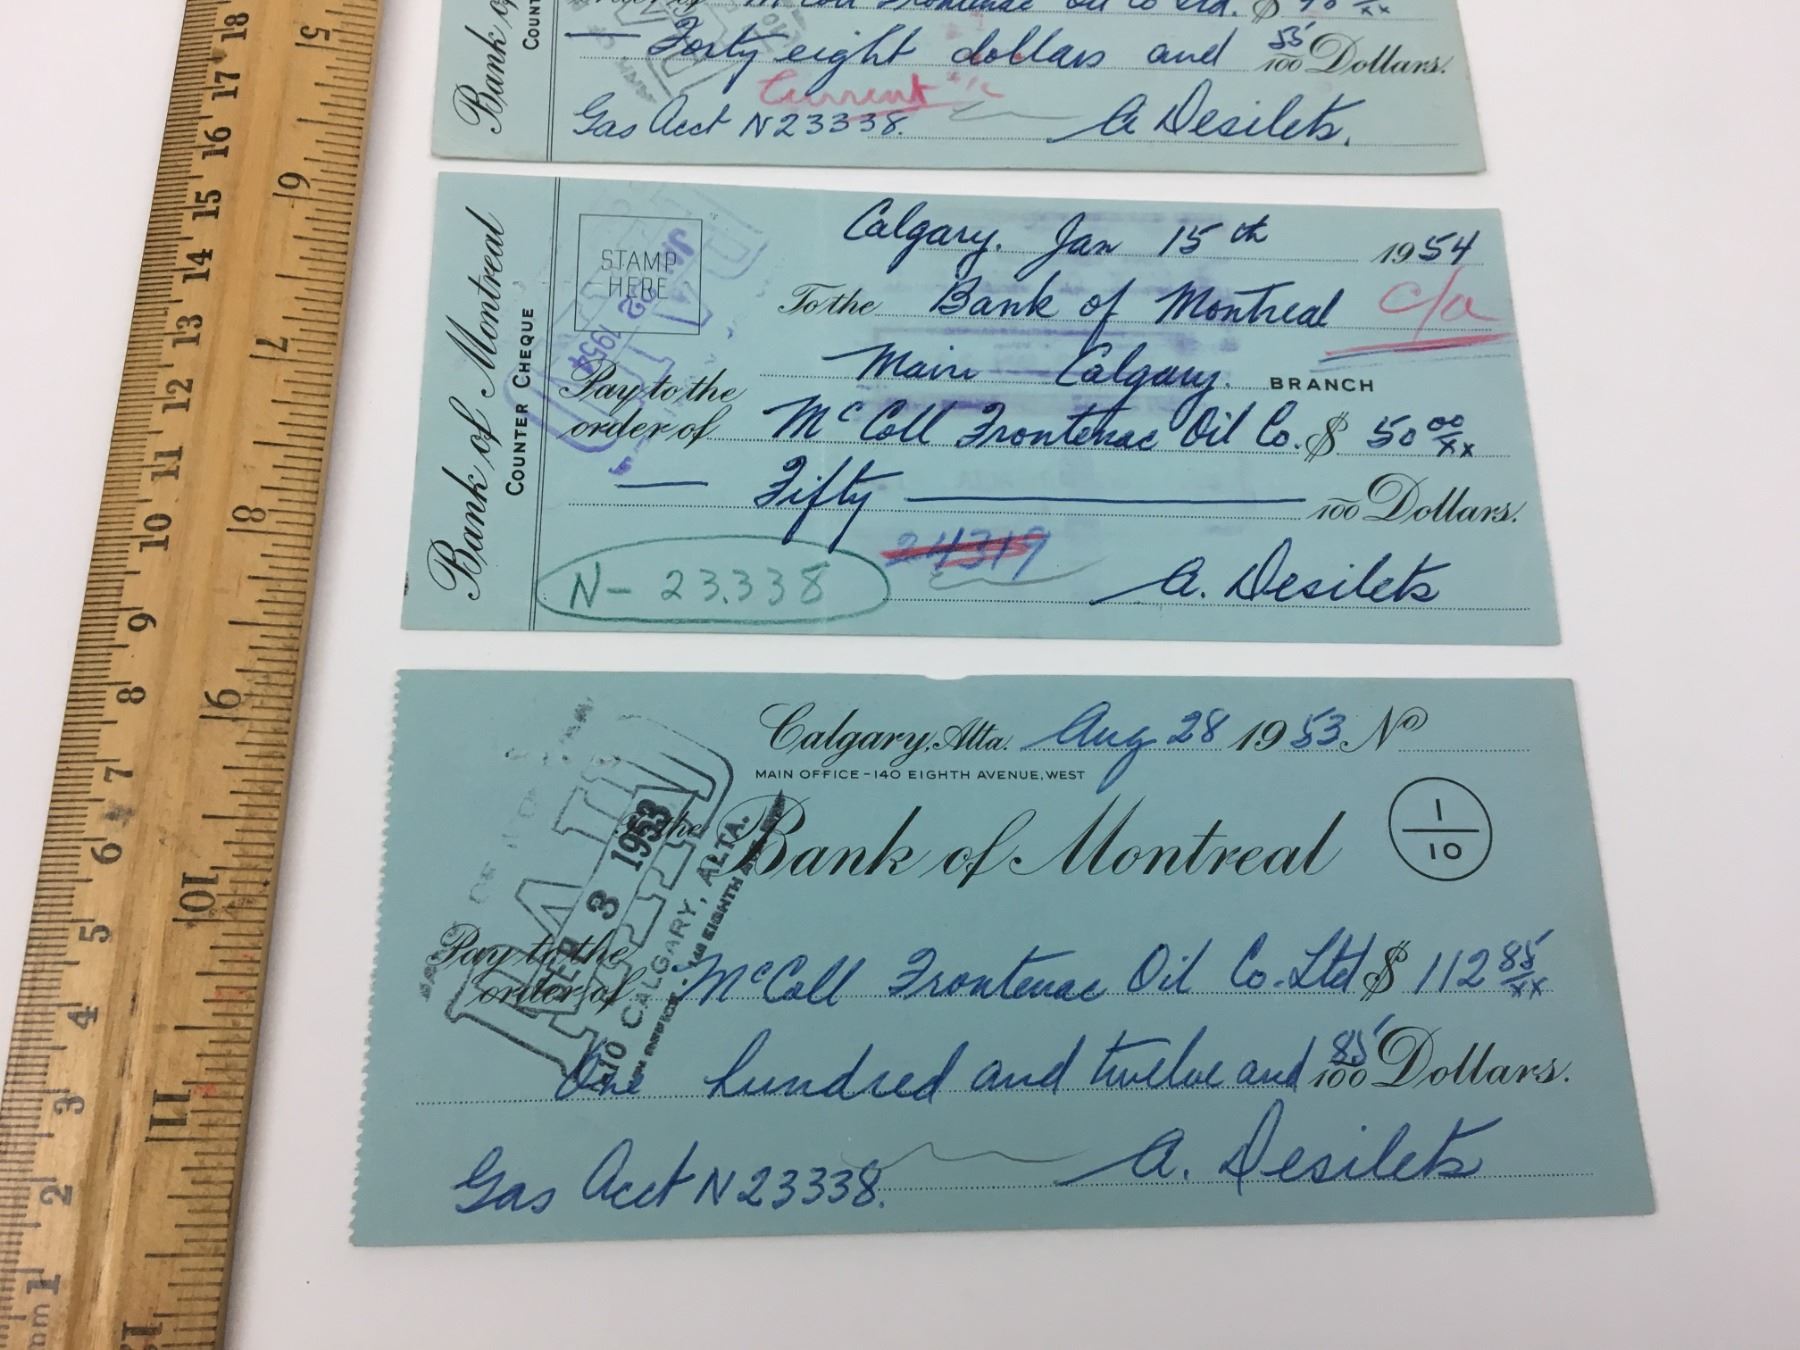 Bank of
COUNT
McColl Frontenac Oil Co Ltd. $ 48 xx
Forty eight dollars and 55/100 Dollars.
Current a/c
Gas Acct N23338. A Desilets.
Bank of Montreal
COUNTER CHEQUE
STAMP HERE
JAN 22 1954
PAID
Calgary. Jan 15th 1954
To the Bank of Montreal c/a
Main Calgary. BRANCH
Pay to the
order of McColl Frontenac Oil Co. $ 50 00/xx
Fifty /100 Dollars.
24319
N- 23.338 A. Desilets
Calgary, Alta. Aug 28 1953 No
MAIN OFFICE - 140 EIGHTH AVENUE, WEST
To the Bank of Montreal 1/10
PAID
SEP 3 1953
1/10 CALGARY, ALTA.
MAIN OFFICE - 140 EIGHTH AVE. WEST
Pay to the
order of McColl Frontenac Oil Co. Ltd $ 112 85/xx
One hundred and twelve and 85/100 Dollars.
Gas Acct N23338. A. Desilets
5 6 7 8 9 10 11 12
18 17 16 15 14 13 12 11 10 9 8 7 6 5 4 3 2 1
mm